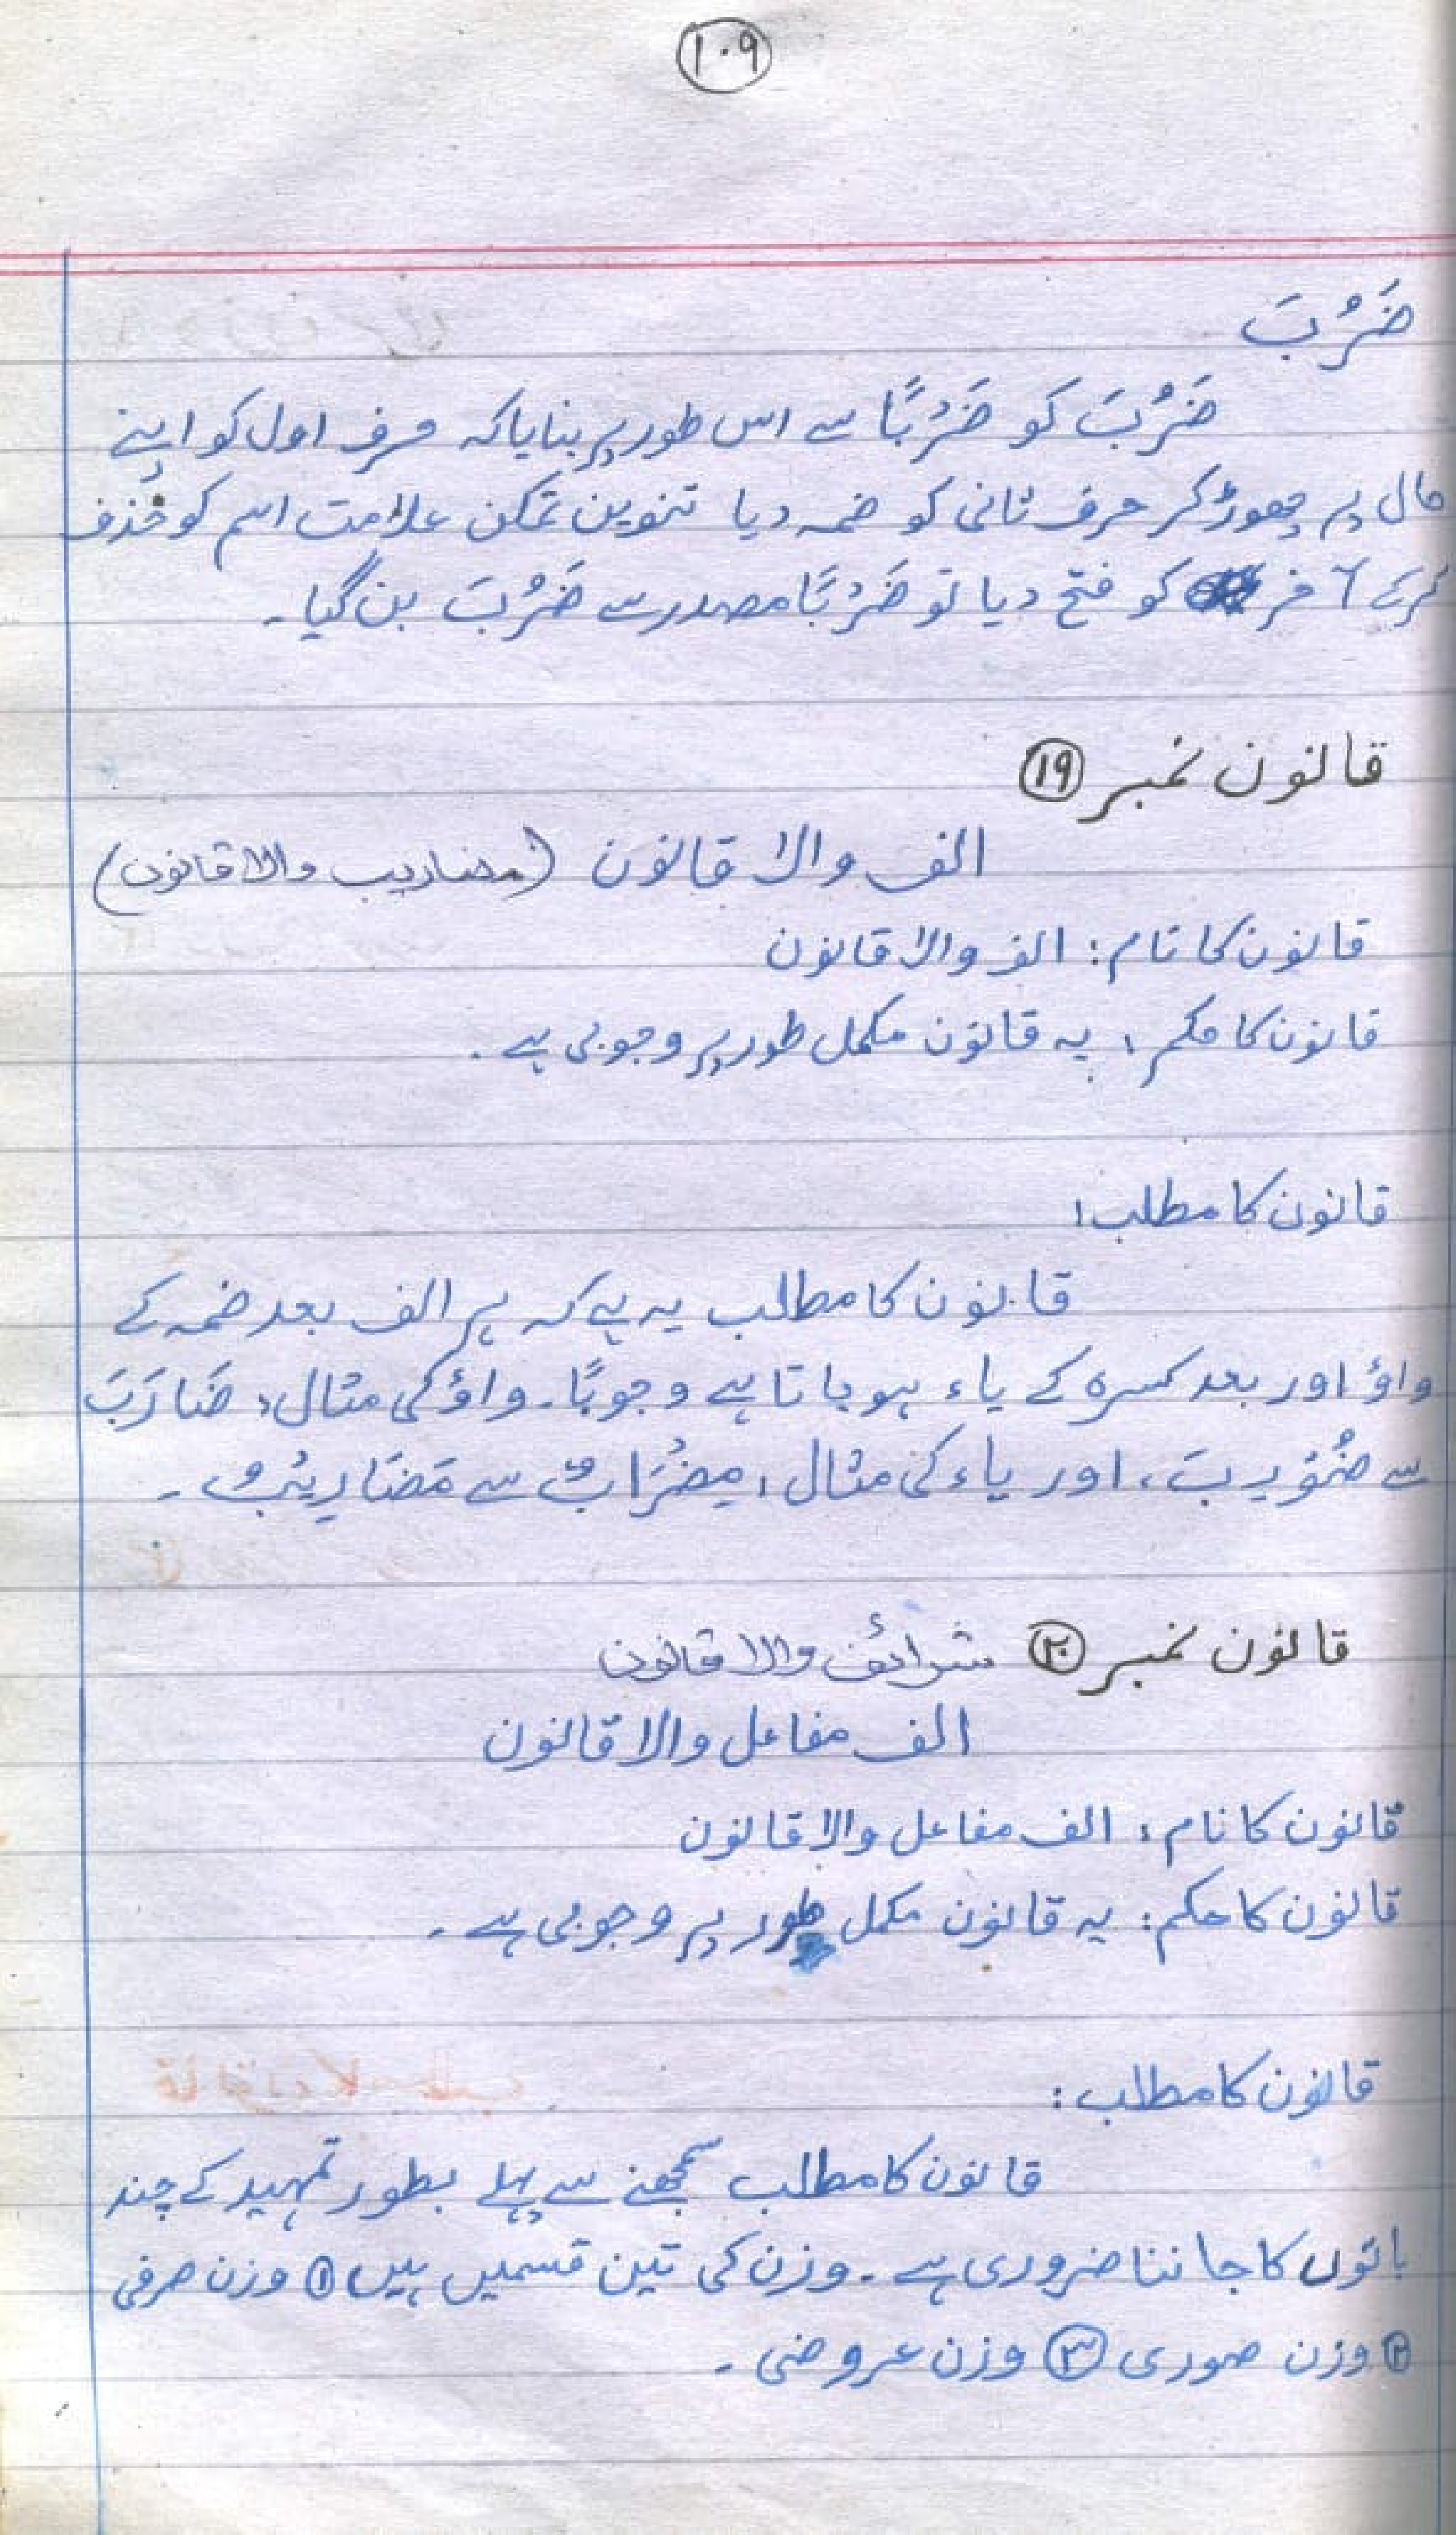 ١٠٩
ضَرُبَ
ضَرُبَ کو ضَرْبًا سے اس طور پر بنایا کہ حرف اول کو اپنے
حال پر چھوڑ کر حرف ثانی کو ضمہ دیا تنوین تمکن علامت اسم کو حذف
کرکے آخر کو فتح دیا تو ضَرْبًا مصدر سے ضَرُبَ بن گیا۔
قانون نمبر ١٩
الف والا قانون (مضاریب والا قانون)
قانون کا نام: الف والا قانون
قانون کا حکم: یہ قانون مکمل طور پر وجوبی ہے۔
قانون کا مطلب:
قانون کا مطلب یہ ہے کہ ہر الف بعد ضمہ کے
واؤ اور بعد کسرہ کے یاء ہو جاتا ہے وجوبًا۔ واؤ کی مثال: ضَارَبَ
سے ضُوْرِبَ، اور یاء کی مثال: مِضْرَابٌ سے مَضَارِيْبُ۔
قانون نمبر ٢٠ شرائف والا قانون
الف مفاعل والا قانون
قانون کا نام: الف مفاعل والا قانون
قانون کا حکم: یہ قانون مکمل طور پر وجوبی ہے۔
قانون کا مطلب:
قانون کا مطلب سمجھنے سے پہلے بطور تمہید کے چند
باتوں کا جاننا ضروری ہے۔ وزن کی تین قسمیں ہیں ① وزن صرفی
② وزن صوری ③ وزن عروضی۔